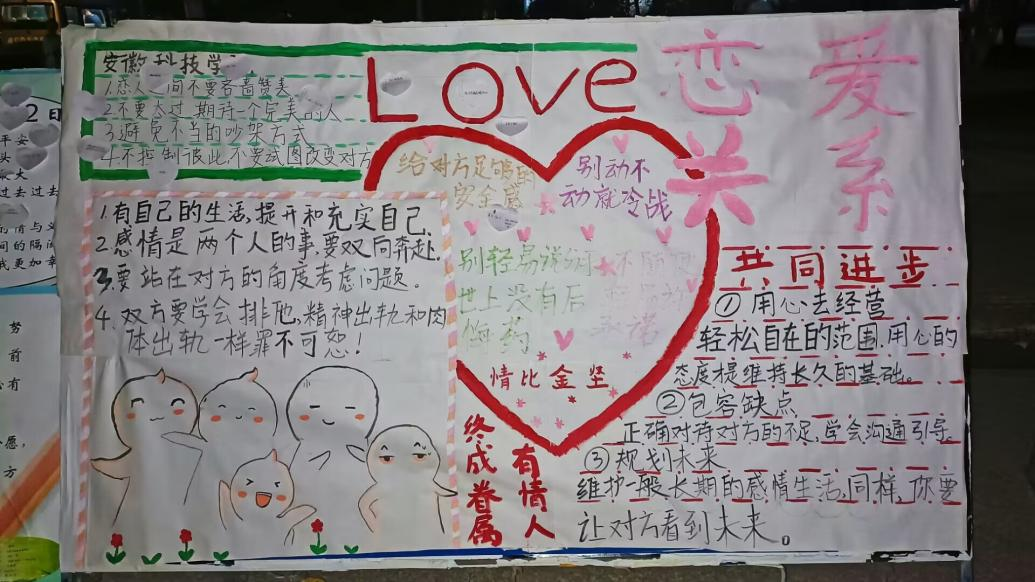 安徽科技学
LOVE
恋爱关系
1.恋人之间不要吝啬赞美
2.不要太过期待一个完美的人
3.避免不当的吵架方式
4.不控制彼此,不要试图改变对方
1.有自己的生活,提升和充实自己.
2.感情是两个人的事,要双向奔赴.
3.要站在对方的角度考虑问题。
4.双方要学会排他,精神出轨和肉
体出轨一样罪不可恕!
给对方足够的
安全感
别动不
动就冷战
别轻易说分
世上没有后
悔药
不随便
承诺
情比金坚
有情人
终成眷属
共同进步
①用心去经营
轻松自在的范围,用心的
态度提维持长久的基础。
②包容缺点
正确对待对方的不足,学会沟通引导.
③规划未来
维护一般长期的感情生活,同样,你要
让对方看到未来。
2日
平安
头
大
过去过去
情与义
间的隔阂
我更加幸
努
前
有
愿,
方